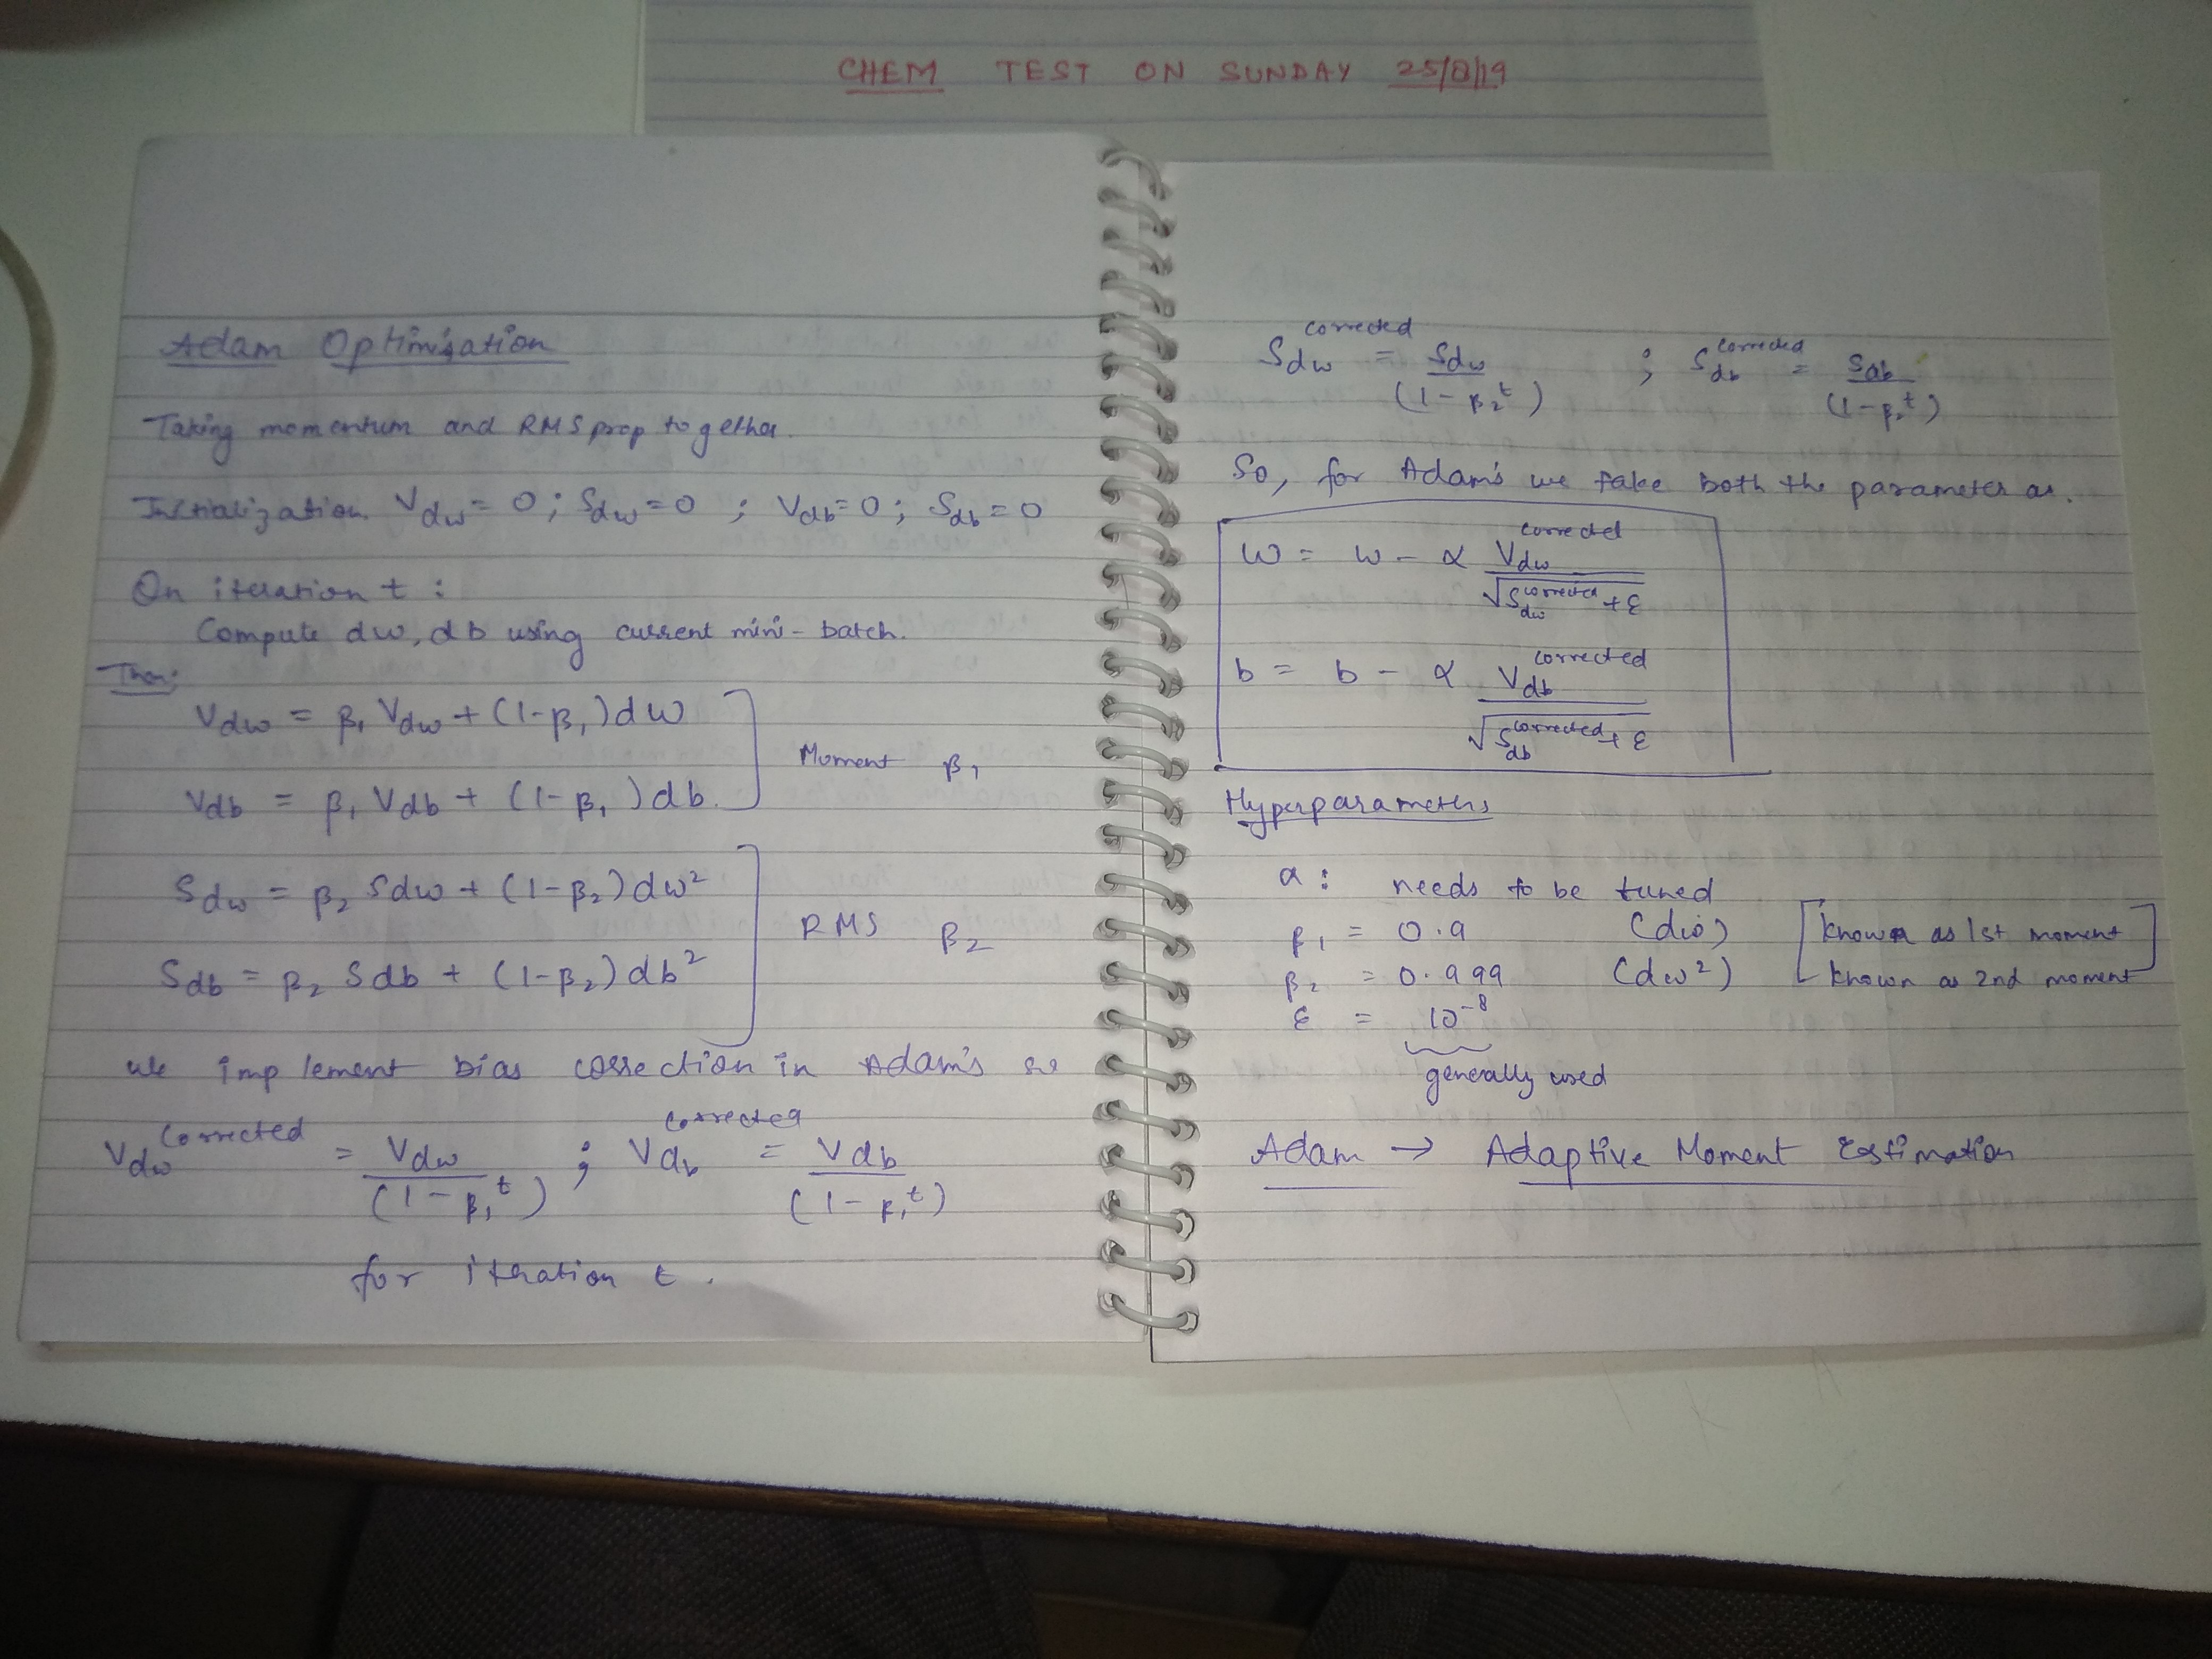 CHEM TEST ON SUNDAY 25/8/19
Adam Optimization
Taking momentum and RMS prop together.
Initialization Vdw = 0 ; Sdw = 0 ; Vdb = 0 ; Sdb = 0
On iteration t :
Compute dw, db using current mini-batch.
Then;
Vdw = β₁ Vdw + (1-β₁)dw
Moment β₁
Vdb = β₁ Vdb + (1-β₁)db.
Sdw = β₂ Sdw + (1-β₂)dw²
RMS β₂
Sdb = β₂ Sdb + (1-β₂)db²
We implement bias correction in Adam's so
Vdw^corrected = Vdw / (1-β₁^t) ; Vdb^corrected = Vdb / (1-β₁^t)
for iteration t.
Sdw^corrected = Sdw / (1-β₂^t) ; Sdb^corrected = Sdb / (1-β₂^t)
So, for Adam's we take both the parameter as.
w = w - α Vdw^corrected / √Sdw^corrected + ε
b = b - α Vdb^corrected / √Sdb^corrected + ε
Hyperparameters
α : needs to be tuned
β₁ = 0.9 (dw) [known as 1st moment]
β₂ = 0.999 (dw²) [known as 2nd moment]
ε = 10⁻⁸
generally used
Adam → Adaptive Moment Estimation